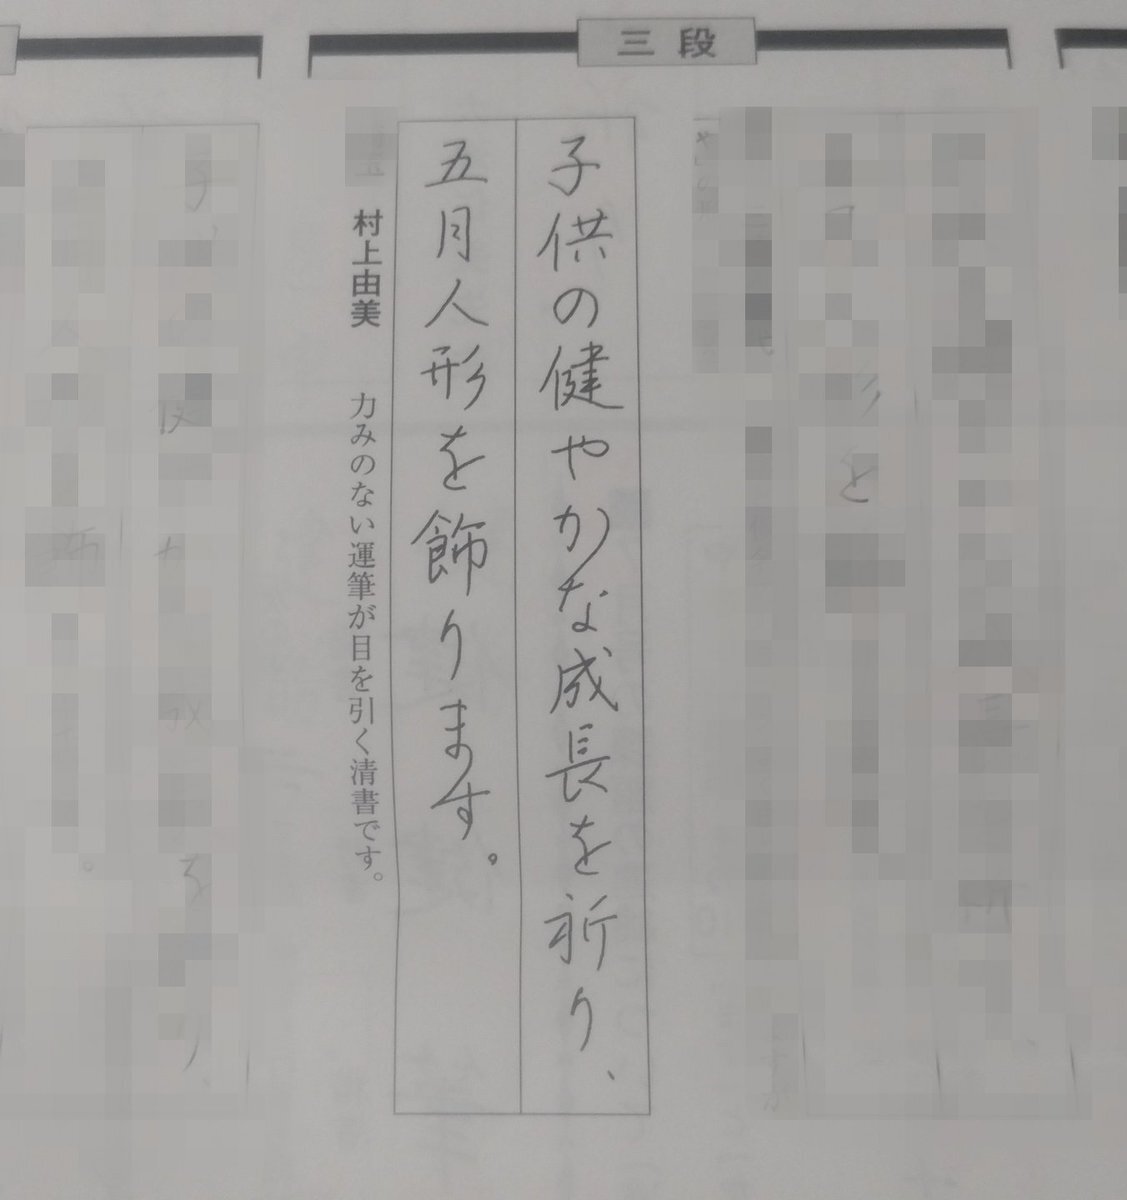 三段
子供の健やかな成長を祈り、
五月人形を飾ります。
村上由美 力みのない運筆が目を引く清書です。